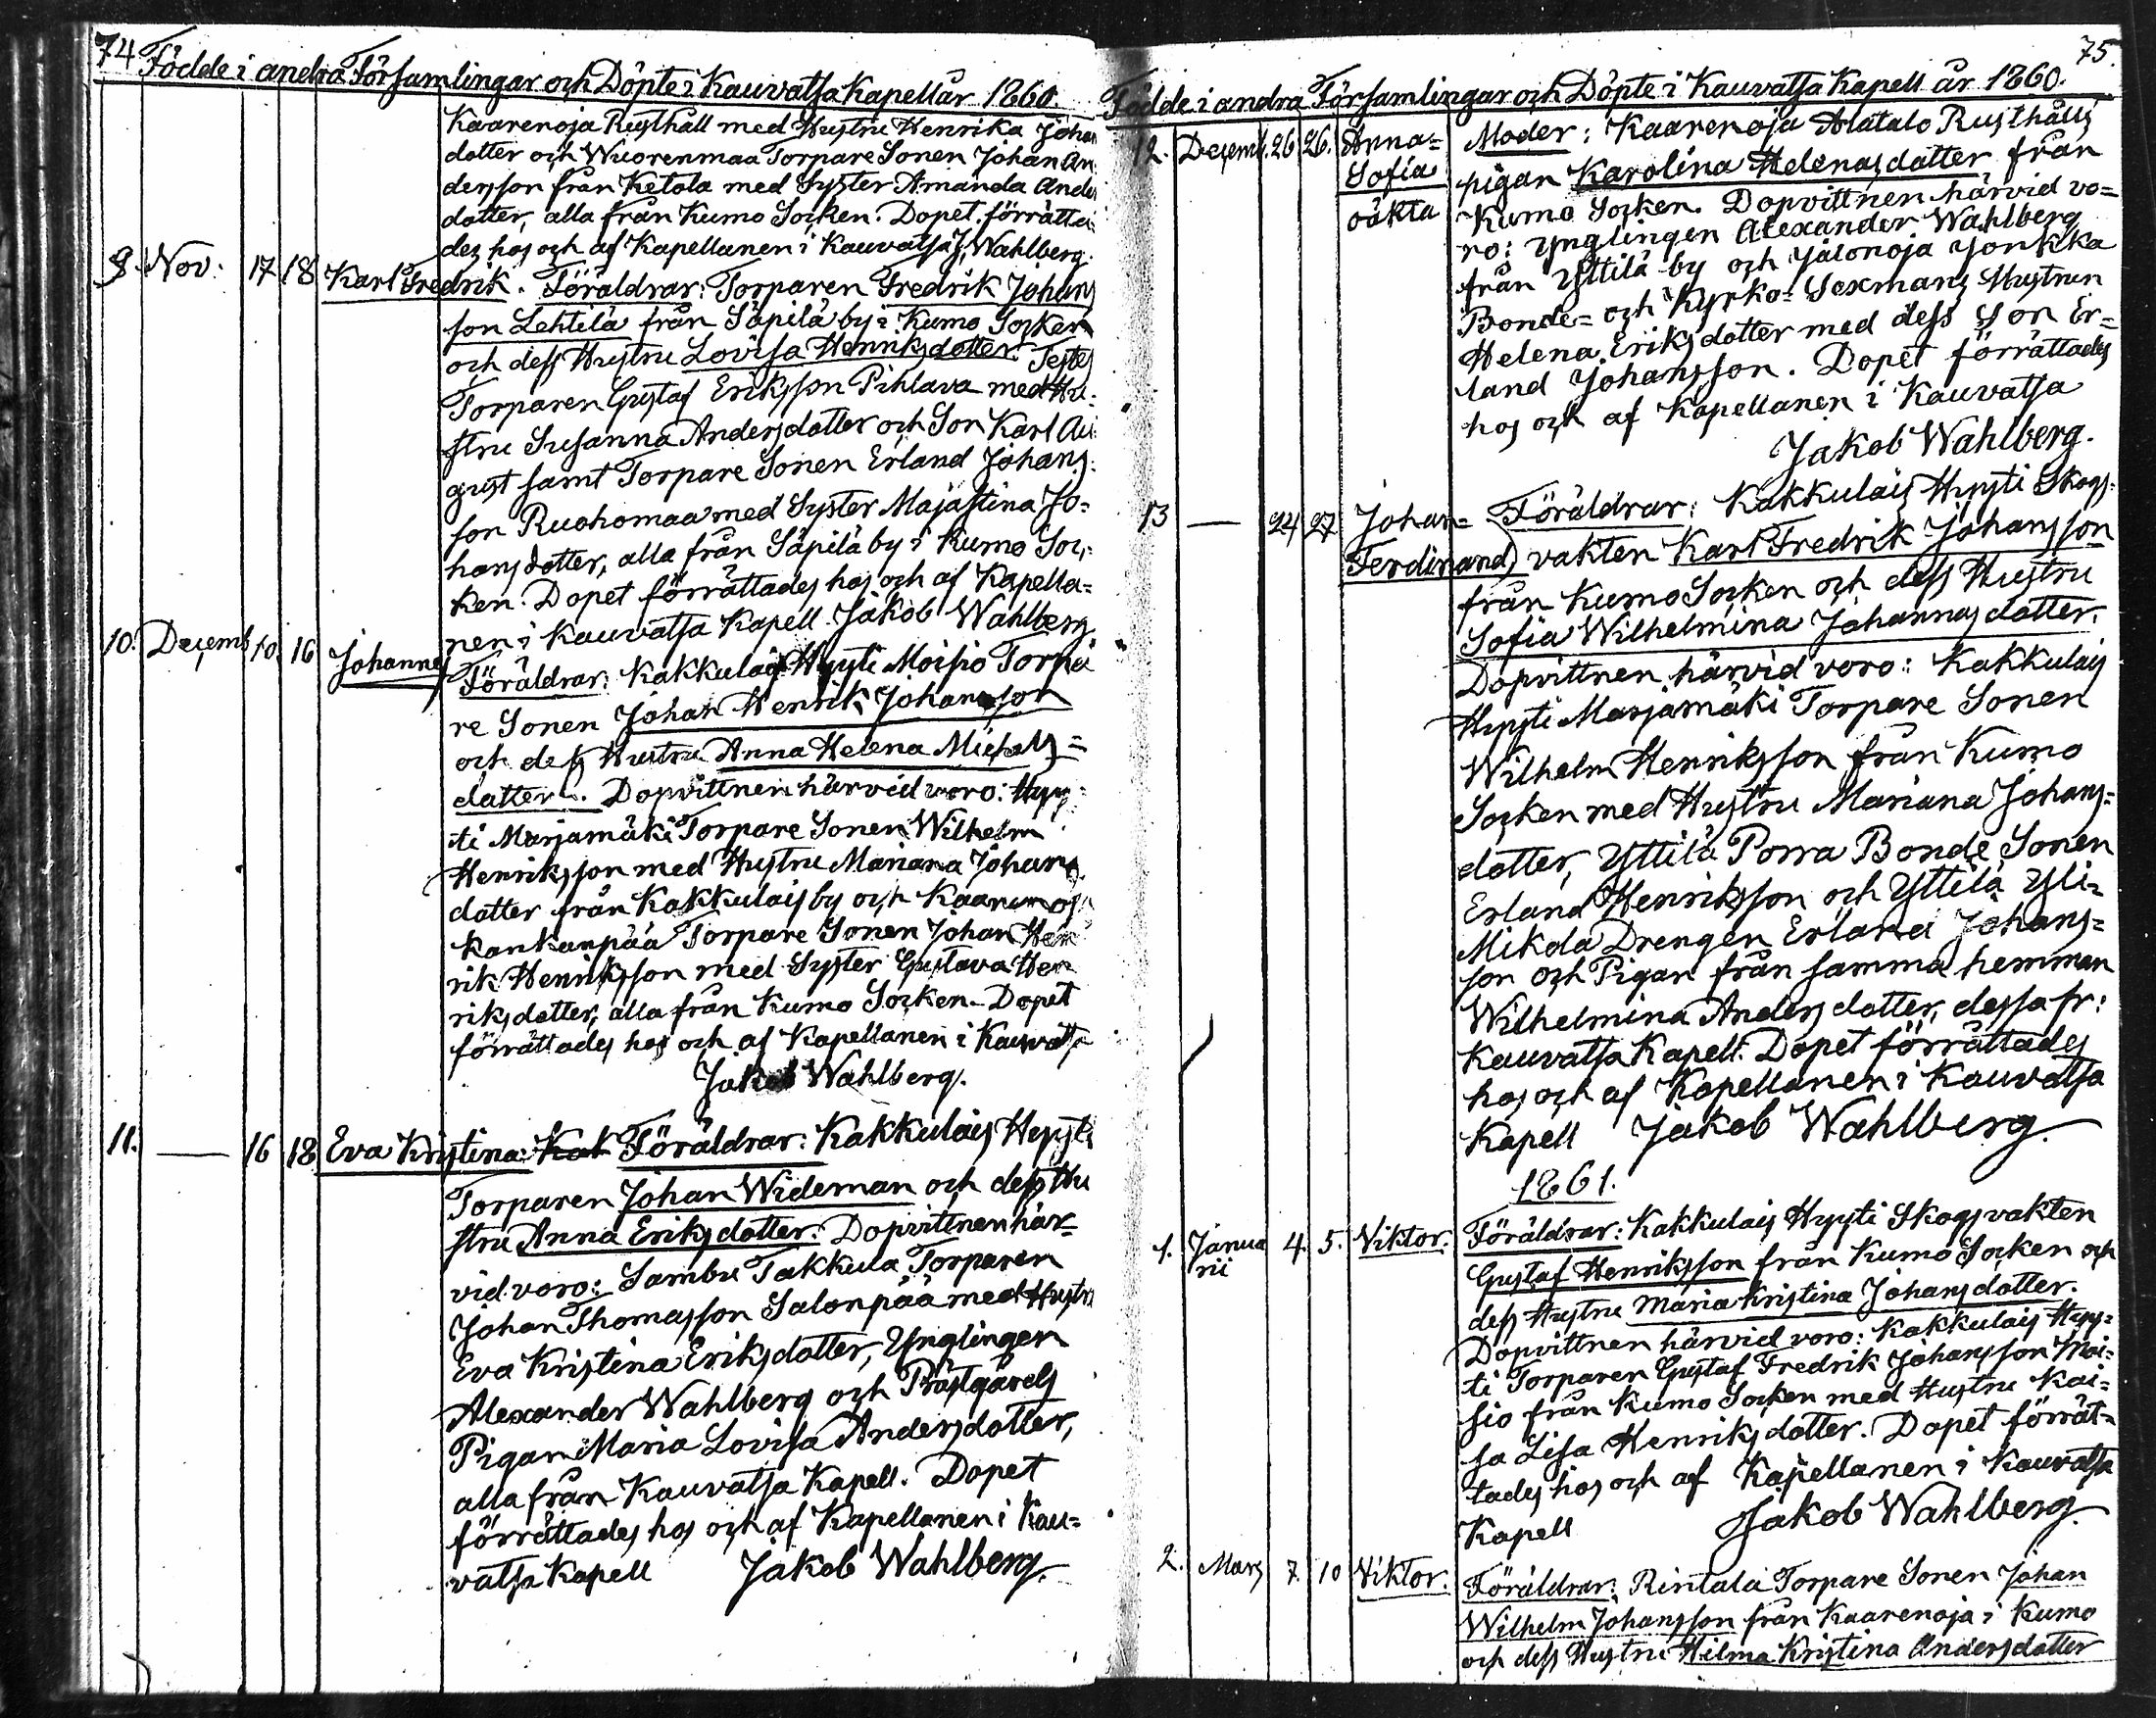 74 Födde i andra Församlingar och Döpte i Kauvatsa Kapell år 1860.
Kaarenoja Rusthåll med Hustru Henrika Johan
dotter och Wuorenmaa Torpare Sonen Johan An
dersson från Ketola med Syster Amanda Anders
dotter, alla från Kumo Socken. Dopet förrätta-
des hos och af Kapellanen i Kauvatsa J. Wahlberg.
9. Nov: 17 18 Karl Fredrik. Föräldrar: Torparen Fredrik Johans
son Lehtilä från Säpilä by i Kumo Socken
och dess Hustru Lovisa Henriksdotter. Testes
Torparen Gustaf Eriksson Pihlava med Hu-
stru Susanna Andersdotter och Son Karl Au-
gust samt Torpare Sonen Erland Johans-
son Ruohomaa med Syster Maja Stina Jo=
hansdotter, alla från Säpilä by i Kumo Soc-
ken. Dopet förrättades hos och af Kapella=
nen i Kauvatsa Kapell Jakob Wahlberg.
10. Decemb 10. 16 Johannes Föräldrar: Kakkulais Hyyti Moisio Torpa
re Sonen Johan Henrik Johansson
och dess Hustru Anna Helena Michels=
dotter. Dopvittnen härvid voro: Hyy-
ti Marjamäki Torpare Sonen Wilhelm
Henriksson med Hustru Mariana Johans
dotter från Kakkulais by och
Kankanpää Torpare Sonen Johan Hen
rik Henriksson med Syster Gustava Hen
riksdotter, alla från Kumo Socken. Dopet
förrättades hos och af Kapellanen i Kauvatsa
Jakob Wahlberg.
11. — 16 18 Eva Kristina: Kak Föräldrar: Kakkulais Hyyti
Torparen Johan Wideman och dess Hu
stru Anna Eriksdotter. Dopvittnen här=
vid voro: Sambu Takkula Torparen
Johan Thomasson Salonpää med Hustru
Eva Kristina Eriksdotter, Ynglingen
Alexander Wahlberg och Prästgårds
Pigan Maria Lovisa Andersdotter,
alla från Kauvatsa Kapell. Dopet
förrättades hos och af Kapellanen i Kau=
vatsa Kapell Jakob Wahlberg.
75.
Födde i andra Församlingar och Döpte i Kauvatsa Kapell år 1860.
12. Decemb. 26 26. Anna= Moder: Kaarenoja Alatalo Rusthålls
Sofia pigan Karolina Helenasdotter från
oäkta Kumo Socken. Dopvittnen härvid vo=
ro: Ynglingen Alexander Wahlberg
från Yttilä by och Jalonoja Jonkka
Bonde= och Kyrko= Sexmans Hustrun
Helena Eriksdotter med dess Son Er=
land Johansson. Dopet förrättades
hos och af Kapellanen i Kauvatsa
Jakob Wahlberg.
13 — 24 27 Johan= Föräldrar: Kakkulais Hyyti Skogs-
Ferdinand vakten Karl Fredrik Johansson
från Kumo Socken och dess Hustru
Sofia Wilhelmina Johannasdotter.
Dopvittnen härvid voro: Kakkulais
Hyyti Marjamäki Torpare Sonen
Wilhelm Henriksson från Kumo
Socken med Hustru Mariana Johans=
dotter, Yttilä Porra Bonde Sonen
Erland Henriksson och Yttilä Yli=
Mikola Drengen Erland Johans=
son och Pigan från samma hemman
Wilhelmina Andersdotter, dessa fr:
Kauvatsa Kapell. Dopet förrättades
hos och af Kapellanen i Kauvatsa
Kapell Jakob Wahlberg.
1861.
1. Janua 4. 5. Viktor. Föräldrar: Kakkulais Hyyti Skogsvakten
rii Gustaf Henriksson från Kumo Socken och
dess Hustru Maria Kristina Johansdotter.
Dopvittnen härvid voro: Kakkulais Hyy=
ti Torparen Gustaf Fredrik Johansson Moi-
sio från Kumo Socken med Hustru Kai=
sa Lisa Henriksdotter. Dopet förrät=
tades hos och af Kapellanen i Kauvatsa
Kapell Jakob Wahlberg.
2. Mars 7. 10 Viktor. Föräldrar: Rintala Torpare Sonen Johan
Wilhelm Johansson från Kaarenoja i Kumo
och dess Hustru Hilma Kristina Andersdotter